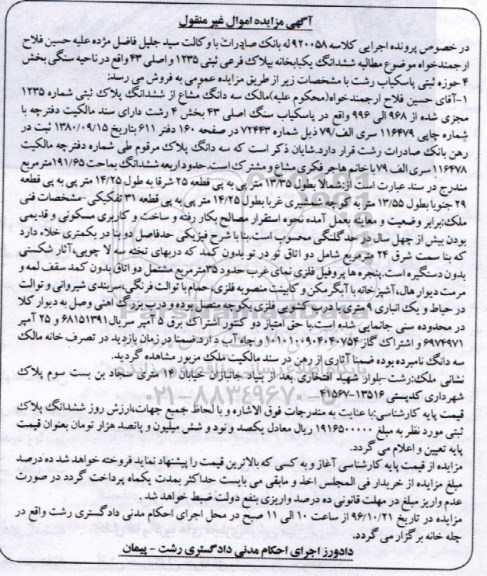 آگهی مزایده اموال غیر منقول
در خصوص پرونده اجرایی کلاسه ۹۲۰۰۵۸ له بانک صادرات با وکالت سید جلیل فاضل مژده علیه حسین فلاح
ارجمندخواه موضوع مطالبه ششدانگ یکبابخانه بپلاک فرعی ثبتی ۱۲۳۵ واصلی ۴۳ واقع در ناحیه سنگی بخش
۴ حوزه ثبتی پاسکیاب رشت با مشخصات زیر از طریق مزایده عمومی به فروش می رسد:
۱-آقای حسین فلاح ارجمندخواه(محکوم علیه)مالک سه دانگ مشاع از ششدانگ پلاک ثبتی شماره ۱۲۳۵
مجزی شده از ۹۶۸ الی ۹۹۶ واقع در پاسکیاب سنگ اصلی ۴۳ بخش ۴ رشت دارای سند مالکیت دفترچه با
شماره چاپی ۱۱۶۴۷۹ سری الف/۷۹ ذیل شماره ۷۲۴۴۳ در صفحه ۱۶۰ دفتر ۶۱۱ بتاریخ ۱۳۸۰/۰۹/۱۵ ثبت در
رهن بانک صادرات رشت قرار دارد.شایان ذکر است که سه دانگ پلاک مرقوم طی شماره دفترچه مالکیت
۱۱۶۴۷۸ سری الف/۷۹ با خانم هاجر فکری مشاع و مشترک است.حدود اربعه ششدانگ بماحت ۱۹۱/۶۵مترمربع
مندرج در سند عبارت است از:شمالا بطول ۱۳/۳۵ متر پی به پی قطعه ۲۵ شرقا به طول ۱۴/۲۵ متر پی به پی قطعه
۲۹ جنوبا بطول ۱۳/۵۵ متر به کوچه شمشیری غربا بطول ۱۴/۲۵ متر پی به پی قطعه ۳۱ تفکیکی-مشخصات فنی
ملک:برابر وضعیت و معاینه بعمل آمده نحوه استقرار مصالح بکار رفته و ساخت و کاربری مسکونی و قدیمی
بودن بیش از چهل سال در حد گلنگی محسوب است.بنا با شرح فیزیکی حدفاصل دو بنا در یکمتری خلاء دارد
که بنا سمت شرق ۲۴ مترمربع شامل دو اتاق تو در تو بدون کمد که دربهای تخته سه لا چوبی،آثار شکستی
بدون دستگیره است.پنجره ها پروفیل فلزی نمای غرب حدود ۳۵مترمربع مشتمل دو اتاق بدون کمد سقف لمه و
مرمت دیوار هال،آشپزخانه با آبگرمکن و کابینت منصوبه فلزی،حمام با توالت فرنگی،سربندی شیروانی و توالت
در حیاط و یک انباری فنری با درب کشویی فلزی بکوچه متصل بوده و درب بزرگ آهنی وصل به دیوار کلا
در محدوده سنی جانمایی شده است.با حق امتیاز دو کنتور اشتراک برق ۵ آمپر سریال۶۸۱۵۱۳۹۱ و ۲۵ آمپر
۶۹۷۴۹۷۱ و اشتراک گاز ۱۰۱۰۱۰۰۹۰۴۰۴۰۷۵۴ و چاه آب دارد.ضمنا در زمان بازدید در تصرف خانه مالک
سه دانگ نامبرده بوده ضمنا آثاری از رهن در سند مالکیت ملک مزبور مشاهده گردید.
نشانی ملک:رشت-بلوار شهید افتخاری بعد از بنیاد جانبازان خیابان ۱۴ متری سجاد بن بست سوم پلاک
شهرداری کدپستی ۱۳۵۱۶-۴۱۵۶۷
قیمت پایه کارشناسی:با عنایت به مندرجات فوق الاشاره و با لحاظ جمیع جهات،ارزش روز ششدانگ پلاک
ثبتی مورد نظر به مبلغ ۱۹۱۶۵۰۰۰۰۰ ریال معادل یکصد و نود و شش میلیون و پانصد هزار تومان بعنوان قیمت
پایه تعیین و اعلام می گردد.
مزایده از قیمت پایه کارشناسی آغاز و به کسی که بالاترین قیمت را پیشنهاد نماید فروخته خواهد شد ده درصد
مبلغ مزایده از خریدار فی المجلس اخذ و مابقی می بایست حداکثر بمدت یکماه پرداخت گردد در صورت
عدم واریز مبلغ در مهلت قانونی ده درصد واریزی بنفع دولت ضبط خواهد شد.
مزایده در تاریخ ۹۶/۱۰/۲۱ از ساعت ۱۰ الی ۱۱ صبح در محل اجرای احکام مدنی دادگستری رشت واقع در
چله خانه برگزار می گردد.
دادورز اجرای احکام مدنی دادگستری رشت - پیمان